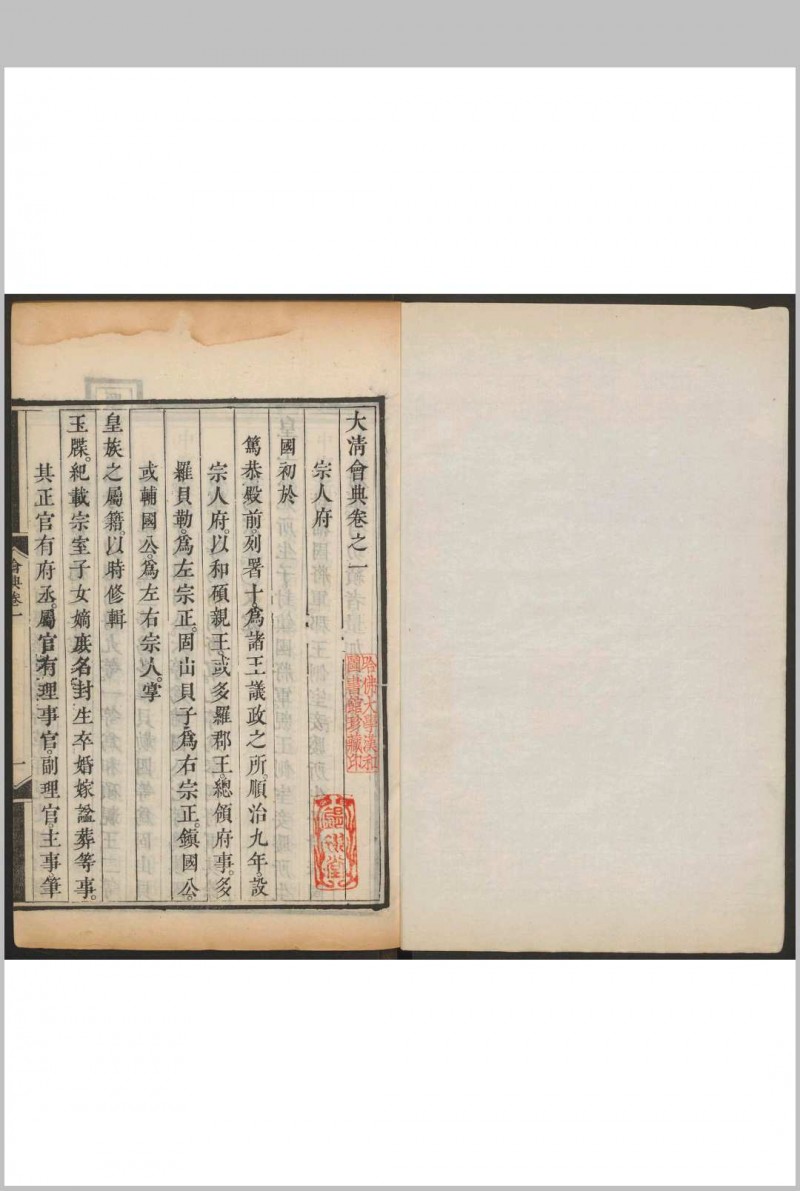 大淸會典卷之一
宗人府
國初於
篤恭殿前。列署十。爲諸王議政之所。順治九年。設
宗人府。以和碩親王。或多羅郡王。總領府事。多
羅貝勒。爲左宗正。固山貝子。爲右宗正。鎭國公。
或輔國公。爲左右宗人。掌
皇族之屬籍。以時修輯
玉牒。紀載宗室子女嫡庶名封生卒婚嫁謚葬等事。
其正官有府丞。屬官有理事官。副理官。主事。筆
會典卷一
一
哈佛大學漢和
圖書館珍藏印